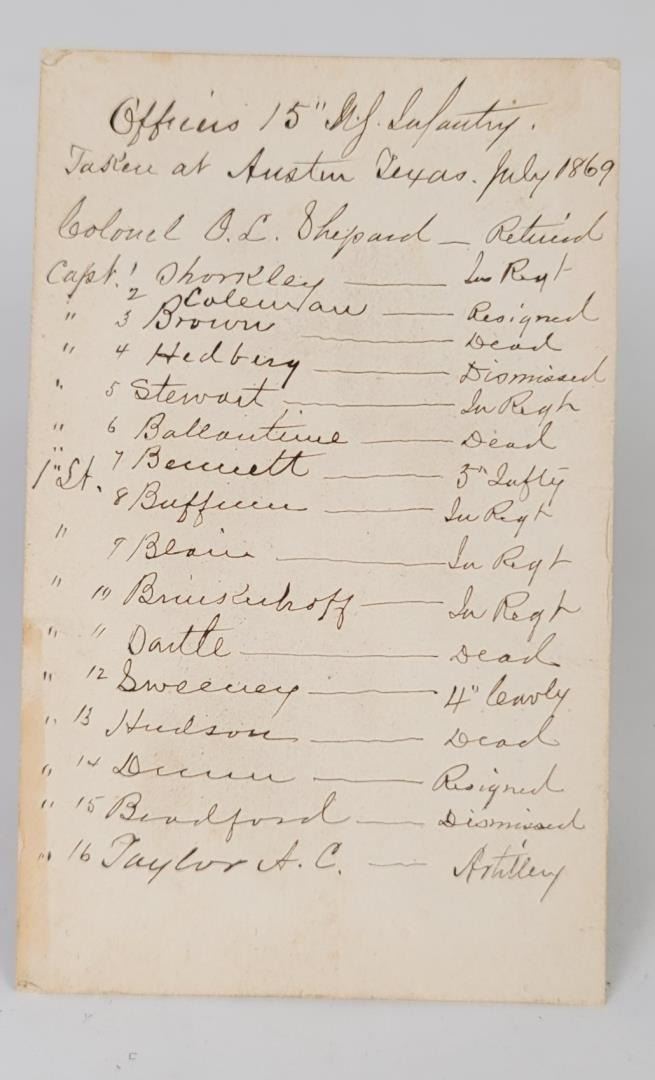 Officers 15" U.S. Infantry.
Taken at Austin Texas. July 1869
Colonel O. L. Shepard — Retired
Capt. 1 Shorkley — In Regt
" 2 Coleman — Resigned
" 3 Brown — Dead
" 4 Hedberg — Dismissed
" 5 Stewart — In Regt
" 6 Ballantine — Dead
" 7 Bennett — 5" Infty
1" Lt. 8 Buffum — In Regt
" 9 Blair — In Regt
" 10 Brinkerhoff — In Regt
" 11 — Dead
" 12 Sweeney — 4" Cavly
" 13 Hudson — Dead
" 14 — Resigned
" 15 Bradford — Dismissed
" 16 Taylor A. C. — Artillery